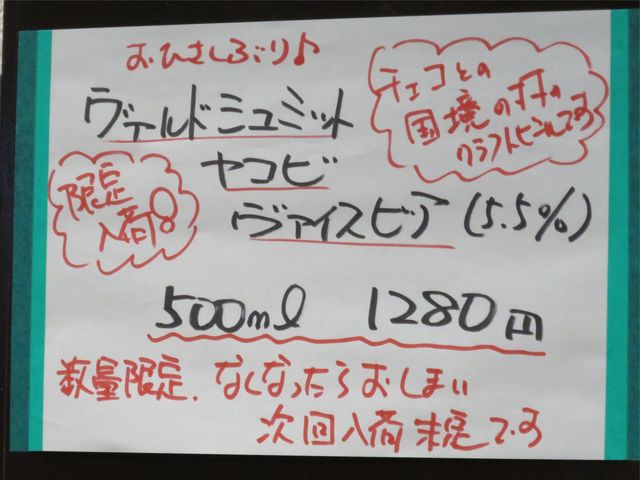 おひさしぶり♪
チェコとの
国境の村の
クラフトビールです
ヴァルドミュミット
ヤコビ
ヴァイスビア(5.5%)
限定
入荷!
500ml 1280円
数量限定、なくなったらおしまい
次回入荷未定です